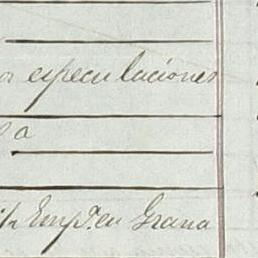 especulaciones
a
Emp.ª en Grana